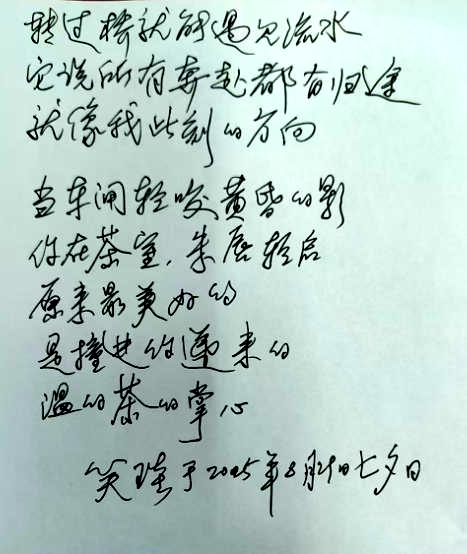 转过桥就能遇见流水
它说所有奔赴都有归途
就像我此刻的方向
当车闸轻咬黄昏的影
你在茶室,朱唇轻启
原来最美好的
是撞进你递来的
温的茶的掌心
笑 于2025年8月29日七夕日